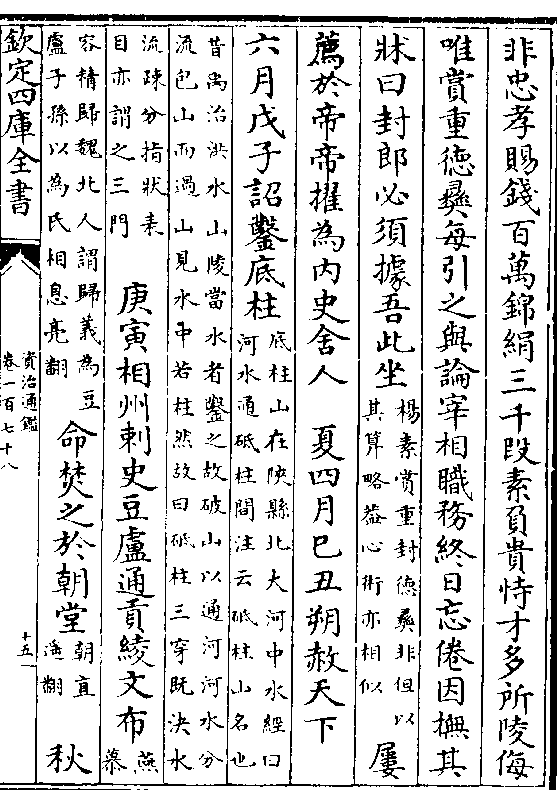 非忠孝賜錢百萬錦絹三千段素負貴恃才多所陵侮
唯賞重德彝每引之與論宰相職務終日忘倦因撫其
牀曰封郎必須據吾此坐楊素賞重封德彝非但以其算略葢心術亦相似屢
薦於帝帝擢為内史舍人 夏四月巳丑朔赦天下
六月戊子詔鑿底柱底柱山在陜縣北大河中水經曰河水通砥柱間注云砥柱山名也
昔禹治洪水山陵當水者鑿之故破山以通河河水分流包山而過山見水中若柱然故曰砥柱三穿既決水
流疎分指狀表目亦謂之三門 庚寅相州刺史豆盧通貢綾文布燕慕
容精歸魏北人謂歸義為豆盧子孫以為氏相息亮翻命焚之於朝堂朝直遥翻 秋
欽定四庫全書
資治通鑑
卷一百七十八
十五